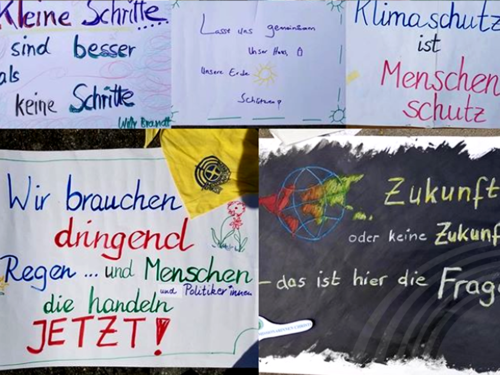 Kleine Schritte...
sind besser
als
keine Schritte
Willy Brandt
Lasse uns gemeinsam
Unser Haus,
Unsere Erde
Schützen
Klimaschutz
ist
Menschen
schutz
Wir brauchen
dringend
Regen ... und Menschen
und Politiker*innen
die handeln
JETZT!
Zukunft
oder keine Zukunft
– das ist hier die Frage